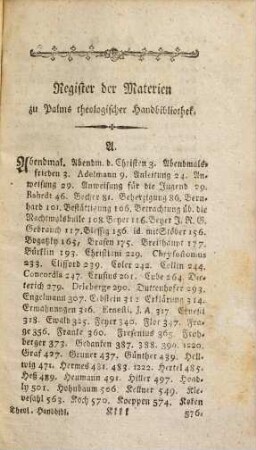 Register der Materien
zu Palms theologischer Handbibliothek.
A.
Abendmal. Abendm. d. Christen 3. Abendmals-
frieden 3. Adelmann 9. Anleitung 24. An-
weisung 29. Anweisung für die Jugend 29.
Bahrdt 46. Becher 81. Beherzigung 86. Bern-
hard 101. Bestättigung 106. Betrachtung üb. die
Nachtmalsbulle 108. Beyer 116. Beyer J. R. G.
Gebrauch 117. Blessig 156. id. mit Stöber 156.
Bogatzky 165. Brasen 175. Breithaupt 177.
Bürklin 193. Christiani 229. Chrysostomus
233. Clifford 239. Coler 242. Collin 244.
Concordia 247. Crusius 261. Cube 264. Die-
terich 291. Deleberge 290. Duttenhofer 293.
Engelmann 307. Erbstein 311. Erklärung 314.
Ermahnungen 316. Ernesti, J. A. 317. Ernesti
318. Ewald 325. Feyer 340. Flor 347. Fra-
ge 356. Franke 360. Fresenius 365. Froh-
berger 373. Gedanken 387. 388. 390. 1220.
Graf 427. Gruner 437. Günther 439. Hell-
wig 471. Hermes 431. 483. 1222. Hertel 485.
Heß 489. Heumann 491. Hiller 497. Hoad-
ly 501. Hohnbaum 506. Kellner 543. Kle-
vesahl 563. Koch 570. Koeppen 574. Koken
Theol. Handbibl.
Kkkk
576.